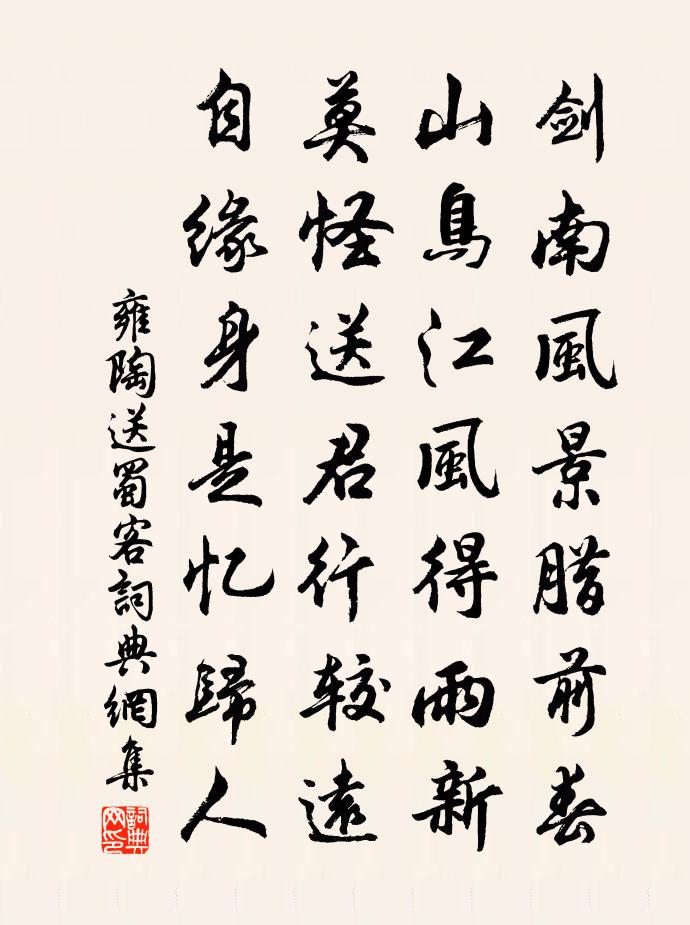 剑南風景腊前春
山鳥江風得雨新
莫怪送君行较遠
自缘身是忆歸人
雍陶送蜀客詞典網集
詞典網印